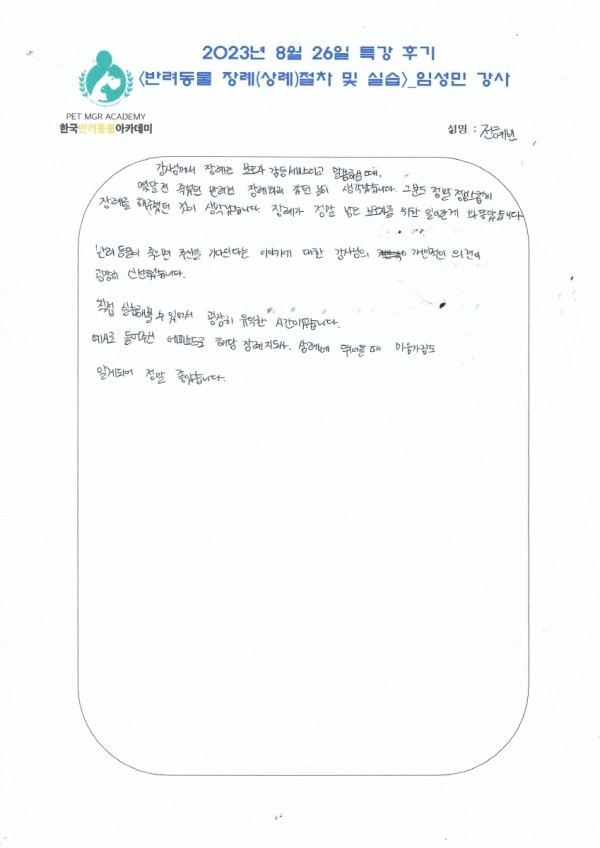 2023년 8월 26일 특강 후기
<반려동물 장례(상례)절차 및 실습>_임성민 강사
PET MGR ACADEMY
한국반려동물아카데미
성명 : 전예빈
강사님께서 장례는 보호자 감동서비스라고 말씀하실 때,
몇달 전 죽었던 반려견 장례치러 갔던 날이 생각났습니다. 그분도 정말 정성스럽게
장례를 해주셨던 것이 생각났습니다. 장례가 정말 남은 보호자를 위한 일이란게 와닿았습니다.
반려동물이 죽으면 주인을 기다린다는 이야기에 대한 강사님의 개인적인 의견이
굉장히 신선했습니다.
직접 실습해볼 수 있어서 굉장히 유익한 시간이었습니다.
예시로 들어주신 에피소드로 해당 장례지도사, 상례에 뛰어들 때 마음가짐도
알게되어 정말 좋았습니다.